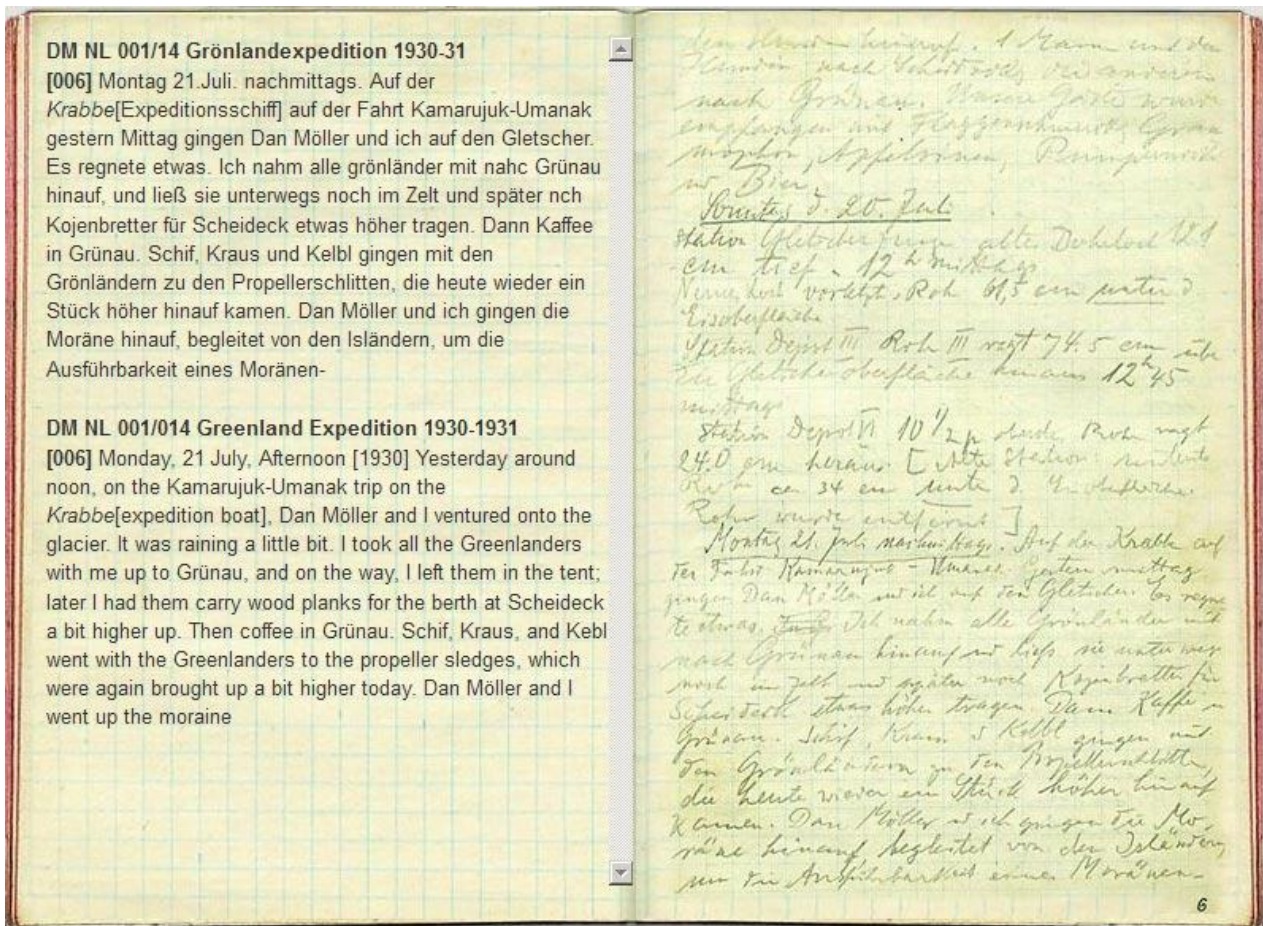 DM NL 001/14 Grönlandexpedition 1930-31
[006] Montag 21.Juli. nachmittags. Auf der
Krabbe[Expeditionsschiff] auf der Fahrt Kamarujuk-Umanak
gestern Mittag gingen Dan Möller und ich auf den Gletscher.
Es regnete etwas. Ich nahm alle grönländer mit nahc Grünau
hinauf, und ließ sie unterwegs noch im Zelt und später nch
Kojenbretter für Scheideck etwas höher tragen. Dann Kaffee
in Grünau. Schif, Kraus und Kelbl gingen mit den
Grönländern zu den Propellerschlitten, die heute wieder ein
Stück höher hinauf kamen. Dan Möller und ich gingen die
Moräne hinauf, begleitet von den Isländern, um die
Ausführbarkeit eines Moränen-
DM NL 001/014 Greenland Expedition 1930-1931
[006] Monday, 21 July, Afternoon [1930] Yesterday around
noon, on the Kamarujuk-Umanak trip on the
Krabbe[expedition boat], Dan Möller and I ventured onto the
glacier. It was raining a little bit. I took all the Greenlanders
with me up to Grünau, and on the way, I left them in the tent;
later I had them carry wood planks for the berth at Scheideck
a bit higher up. Then coffee in Grünau. Schif, Kraus, and Kebl
went with the Greenlanders to the propeller sledges, which
were again brought up a bit higher today. Dan Möller and I
went up the moraine
hinauf. 1 Mann und
nach
nach Grünau. Unsere Gäste
empfangen mit Flaggenschmuck,
Apfelsinen,
Bier.
Sonntag d. 20. Juli
Station Gletscher alte Bohrloch 121
cm tief. 12 h mittags
Rohr 61,5 cm unter d.
Eisoberfläche
Station Depot III Rohr III ragt 74.5 cm über
die Gletscheroberfläche hinaus 12 h 45
mittags
Station Depot VI 10 1/2 Rohr ragt
24.0 cm heraus. [Alte Station:
ca 34 cm unter d.
Rohr wurde entfernt]
Montag 21. Juli nachmittags. Auf der Krabbe auf
der Fahrt Kamarujuk - Umanak. Gestern mittag
gingen Dan Möller und ich auf den Gletscher. Es regne
te etwas. Ich nahm alle Grönländer mit
nach Grünau hinauf und ließ sie unterwegs
noch im Zelt und später noch Kojenbretter für
Scheideck etwas höher tragen. Dann Kaffee in
Grünau. Schif, Kraus u Kelbl gingen mit
den Grönländern zu den Propellerschlitten,
die heute wieder ein Stück höher hinauf
kamen. Dan Möller u ich gingen die Mo-
räne hinauf begleitet von den Isländern,
um die Ausführbarkeit eines Moränen-
6